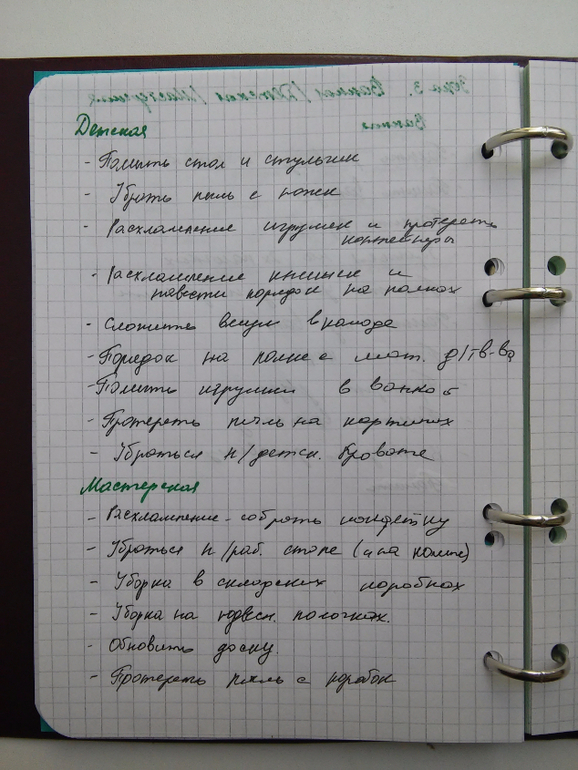 Детская
- Помыть стол и стульчик
- Убрать пыль с ножек
- Расхламление игрушек и протереть
контейнеры
- Расхламление книжек и
навести порядок на полках
- Сложить вещи в комоде
- Порядок на полке с мат. д/тв-ва
- Помыть игрушки в ванной
- Протереть пыль на картинах
- Убраться н/детск. кровате
Мастерская
- Расхламление - собрать конфетку
- Убраться н/раб. столе (и на полке)
- Уборка в складских коробках
- Уборка на подвесн. полочках.
- Обновить доску.
- Протереть пыль с коробок